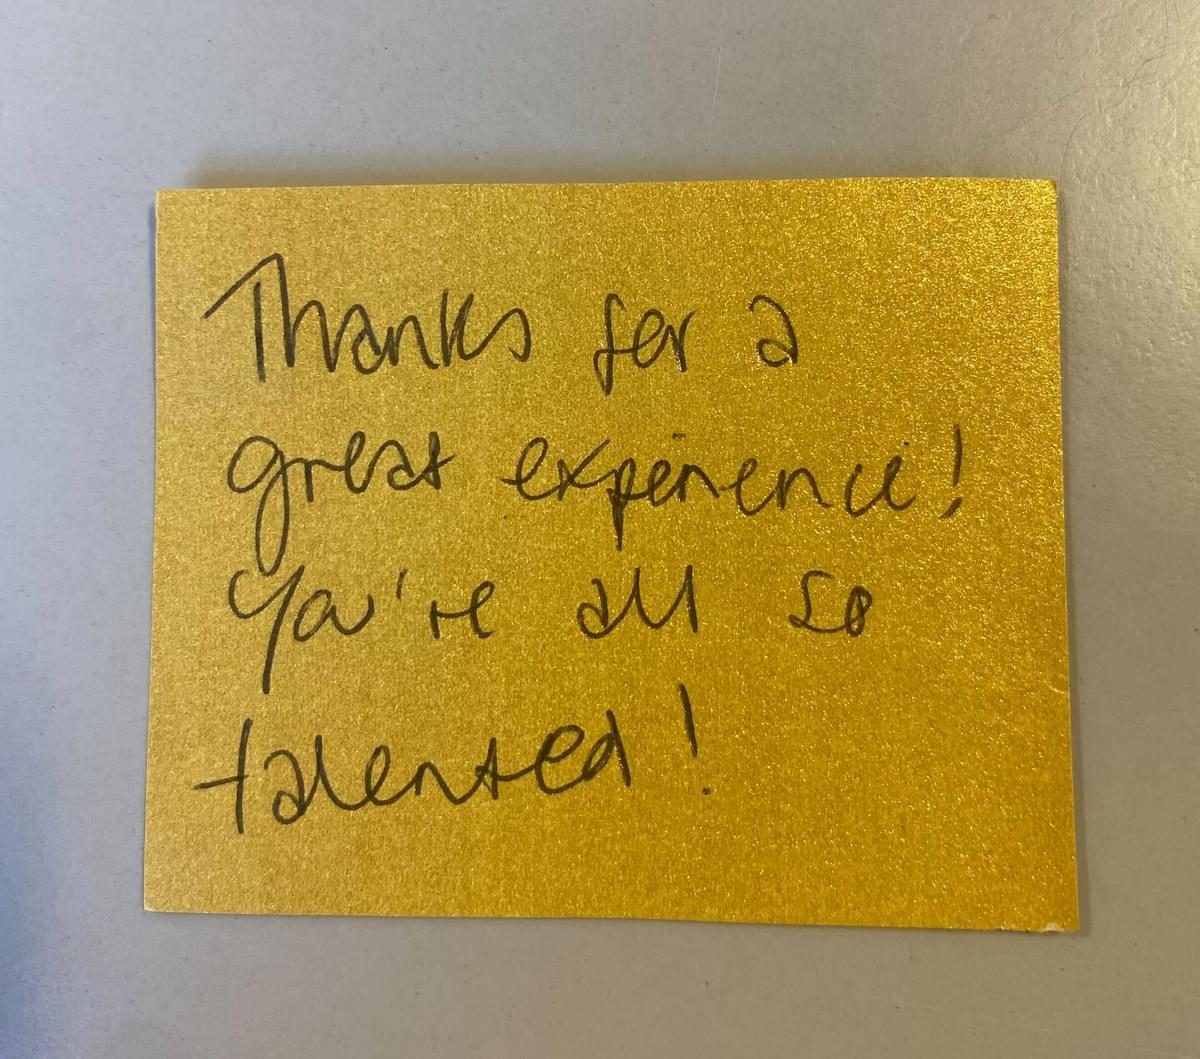 Thanks for a
great experience!
You're all so
talented!